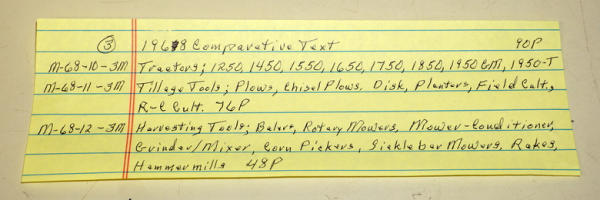 ③ 1968 Comparative Text 90P
M-68-10-3M Tractors; 1250, 1450, 1550, 1650, 1750, 1850, 1950 GM, 1950-T
M-68-11-3M Tillage Tools; Plows, Chisel Plows, Disk, Planters, Field Cult.,
R-C Cult. 76P
M-68-12-3M Harvesting Tools; Balers, Rotary Mowers, Mower-Conditioner,
Grinder/Mixer, Corn Pickers, Sickle bar Mowers, Rakes,
Hammermills 48P